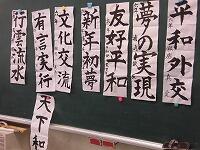 平和外交
夢の実現
友好平和
新年初夢
文化交流
有言実行
天下和
行雲流水